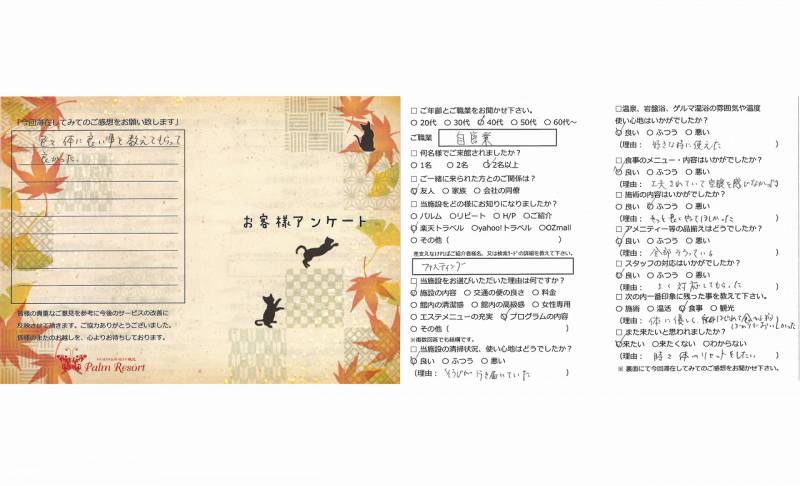 「今回滞在してみてのご感想をお願い致します」
色々体に良い事を教えてもらって
良かった。
皆様の貴重なご意見を参考に今後のサービスの改善に
反映させて頂きます。ご協力ありがとうございました。
皆様のまたのお越しを、心よりお待ちしております。
Palm Resort
お客様アンケート
□ ご年齢とご職業をお聞かせ下さい。
○ 20代 ○ 30代 ○ 40代 ○ 50代 ○ 60代～
ご職業 自営業
□ 何名様でご来館されましたか?
○ 1名 ○ 2名 ○ 2名以上
□ ご一緒に来られた方とのご関係は?
○ 友人 ○ 家族 ○ 会社の同僚
□ 当施設をどの様にお知りになりましたか?
○ パルム ○リピート ○ H/P ○ご紹介
○ 楽天トラベル ○yahoo!トラベル ○OZmall
○ その他 ( )
差支えなければご紹介者様名、又は検索ワードの詳細を教えて下さい。
ファスティング
□ 当施設をお選びいただいた理由は何ですか?
○ 施設の内容 ○ 交通の便の良さ ○ 料金
○ 館内の清潔感 ○ 館内の高級感 ○ 女性専用
○ エステメニューの充実 ○ プログラムの内容
○ その他 ( )
※複数回答でも結構です。
□ 当施設の清掃状況、使い心地はどうでしたか?
○ 良い ○ ふつう ○ 悪い
(理由: そうじが行き届いていた )
□温泉、岩盤浴、ゲルマ温浴の雰囲気や温度
使い心地はいかがでしたか?
○ 良い ○ ふつう ○ 悪い
(理由: 好きな時に使えた )
□ 食事のメニュー・内容はいかがでしたか?
○ 良い ○ ふつう ○ 悪い
(理由: 工夫されていて空腹を感じなかった )
□ 施術の内容はいかがでしたか?
○ 良い ○ ふつう ○ 悪い
(理由: もっと長くやってほしかった )
□ アメニティー等の品揃えはどうでしたか?
○ 良い ○ ふつう ○ 悪い
(理由: 全部そろっている )
□ スタッフの対応はいかがでしたか?
○ 良い ○ ふつう ○ 悪い
(理由: よく対応してもらった )
□ 次の内一番印象に残った事を教えて下さい。
○ 施術 ○ 温活 ○ 食事 ○ 観光
(理由: 体に優しく、
ばかりでおいしかった
□ また来たいと思われましたか?
○ 来たい ○ 来たくない ○わからない
(理由: 時々体のリセットをしたい )
※ 裏面にて今回滞在してみてのご感想をお聞かせ下さい。